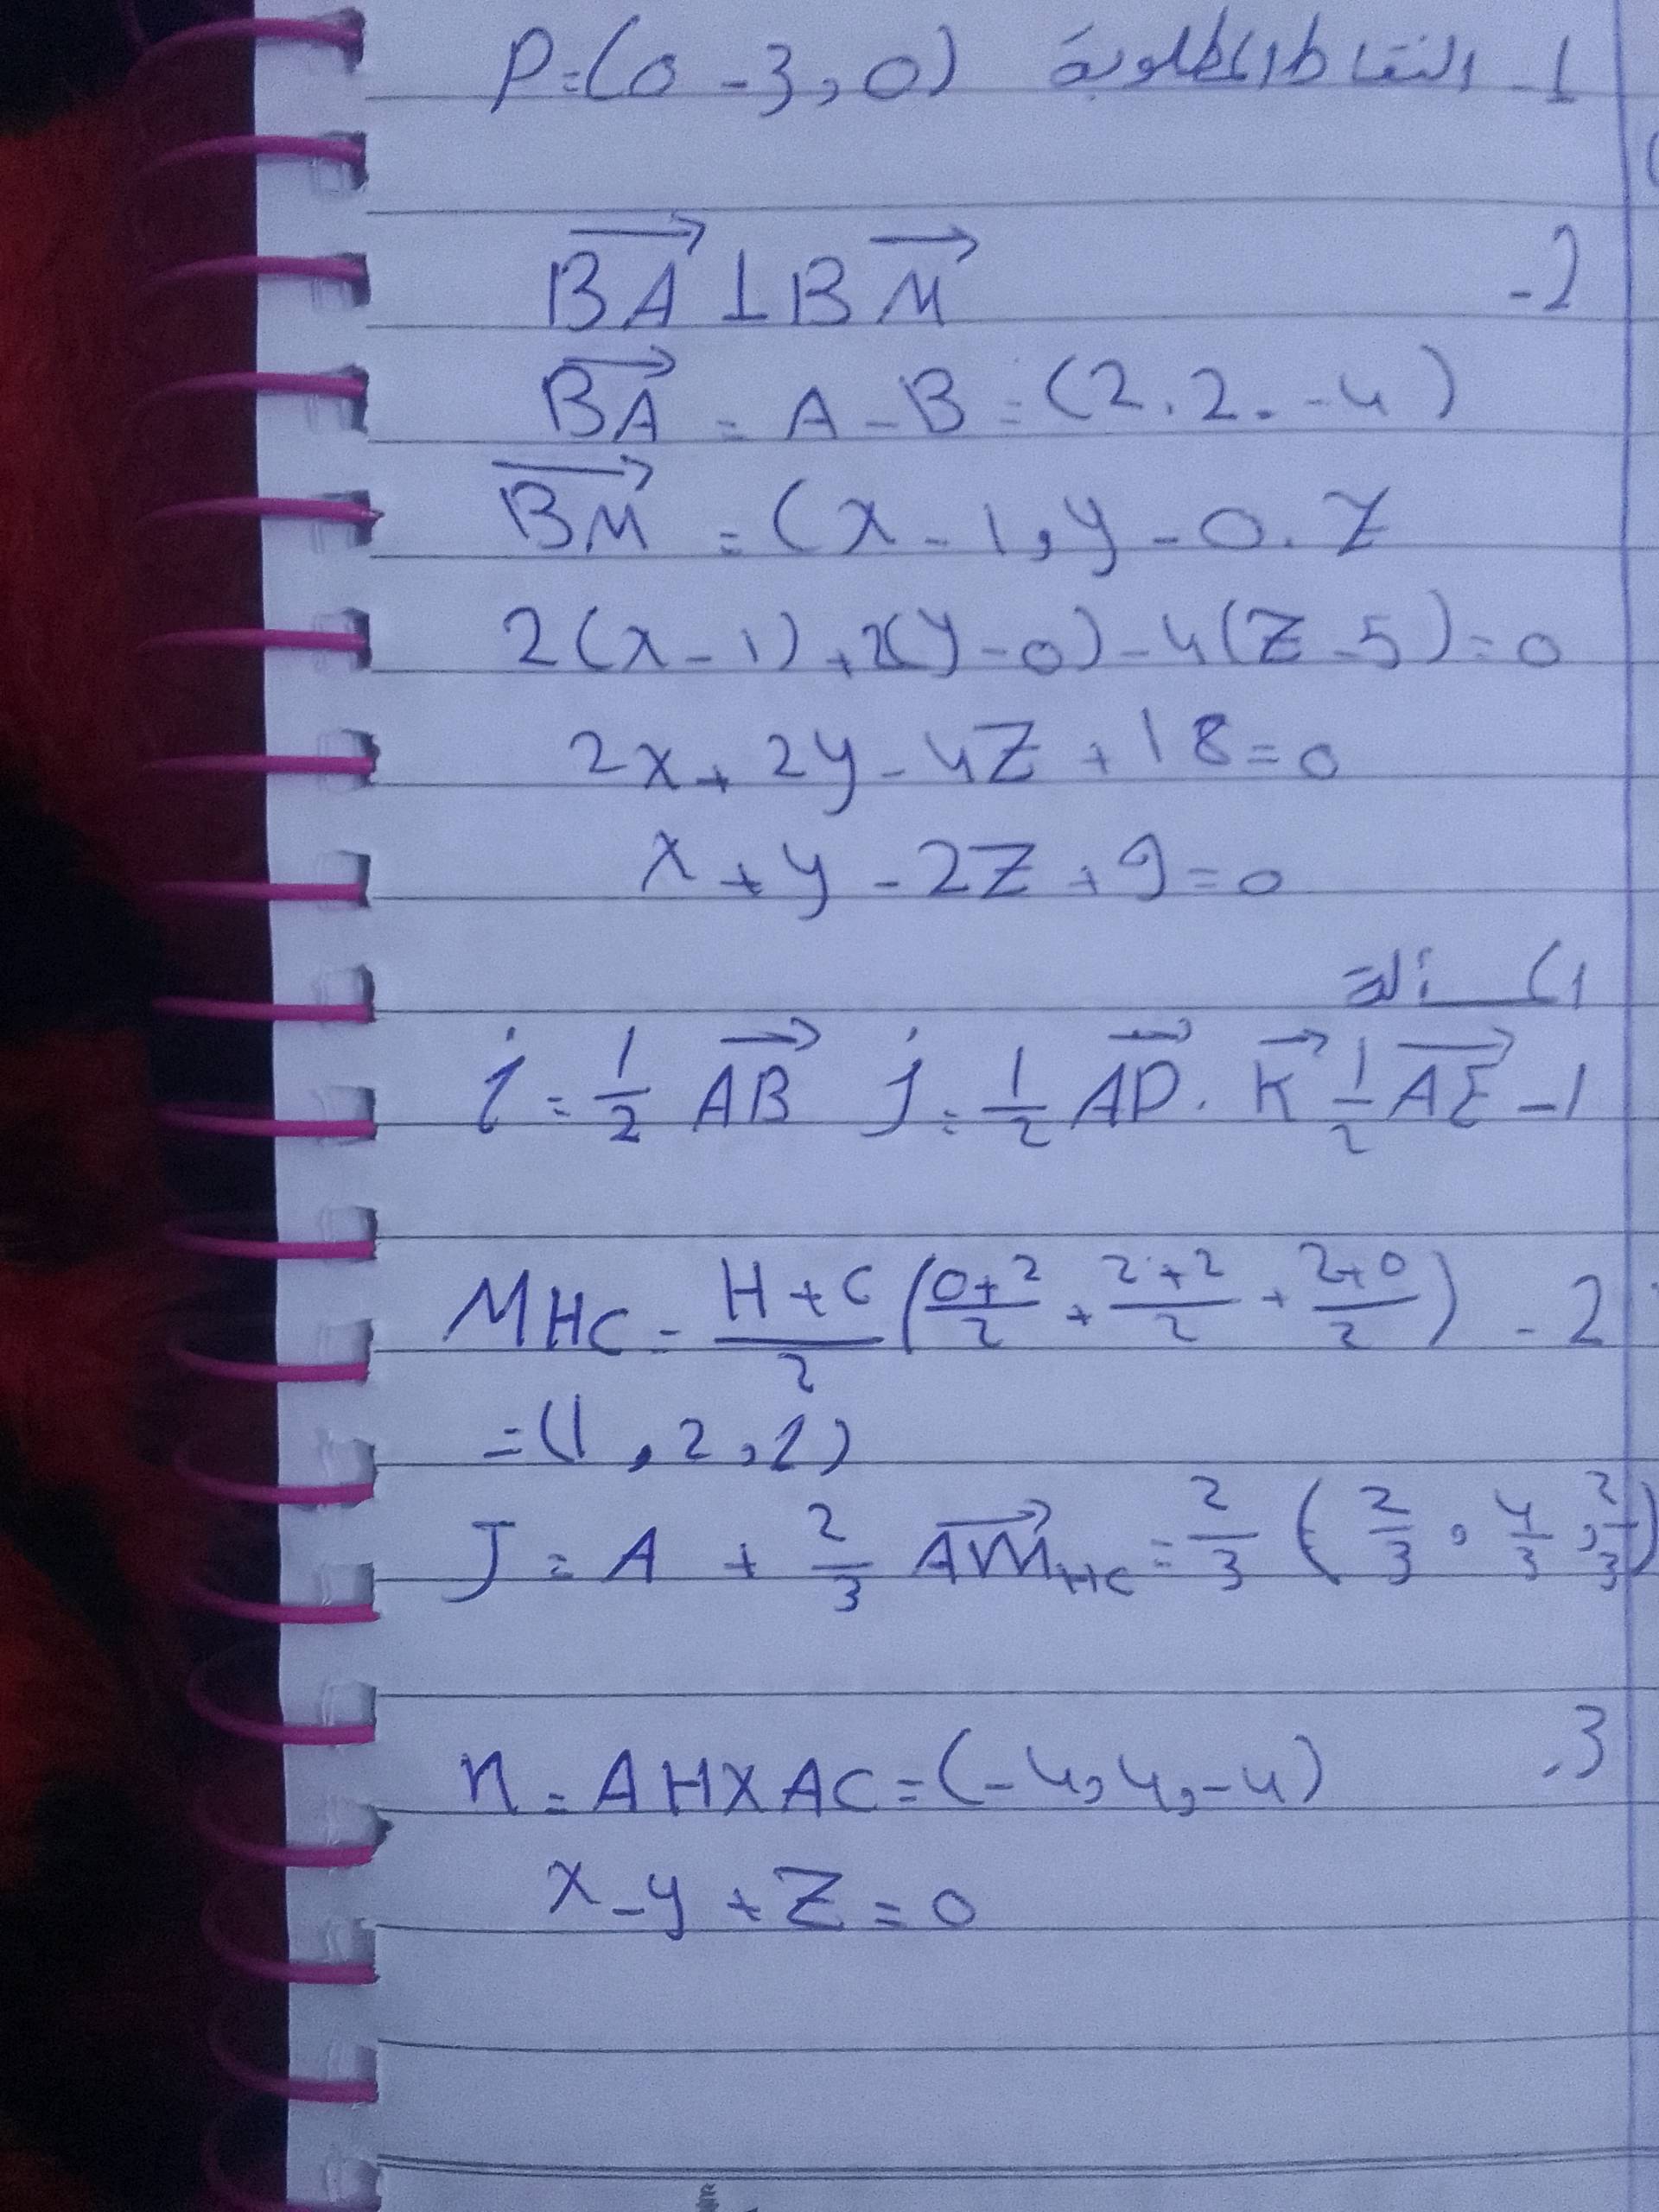 1- النقاط المطلوبة P=(0-3,0)
2- BA ⊥ BM
BA = A - B = (2.2.-4)
BM = (x-1,y-0.Z
2(x-1)+2(y-0)-4(Z-5)=0
2x+2y-4Z+18=0
x+y-2Z+9=0
i=1/2 AB j=1/2 AD. K 1/2 AE -1
MHC = H+C/2 (0+2/2 + 2+2/2 + 2+0/2) -2
=(1,2,1)
J = A + 2/3 AMHC = 2/3 (2/3, 4/3, 2/3)
n = AHXAC=(-4,4,-4) .3
x-y+Z=0